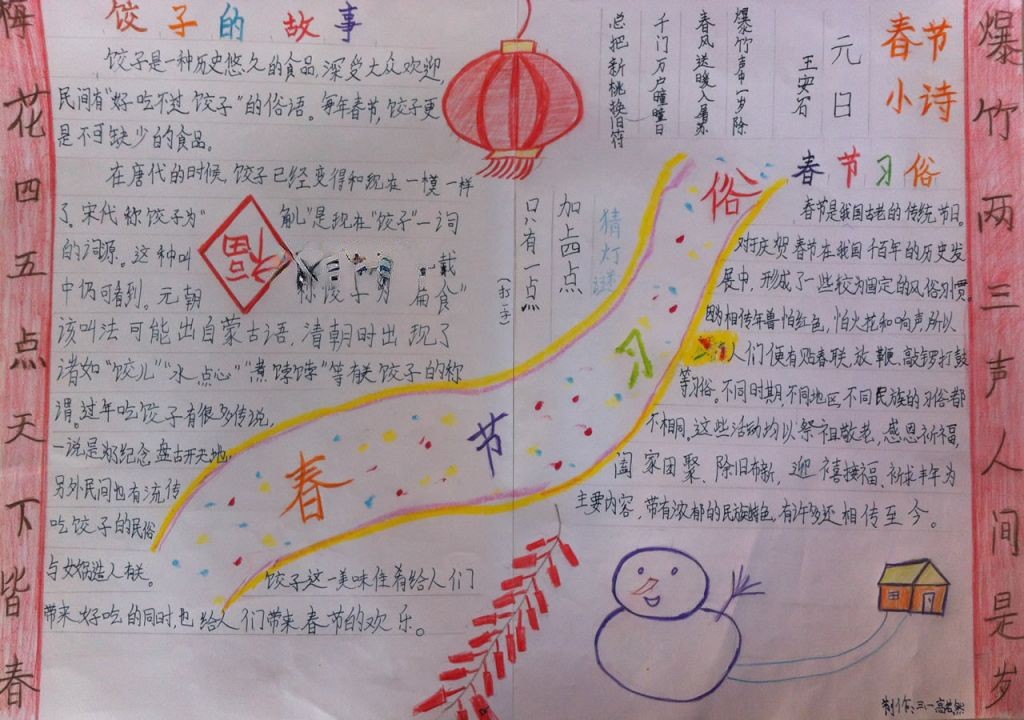 梅花四五点天下皆春
饺子的故事
饺子是一种历史悠久的食品,深受大众欢迎,
民间有"好吃不过饺子"的俗语。每年春节,饺子更
是不可缺少的食品。
在唐代的时候,饺子已经变得和现在一模一样
了,宋代称饺子为" 角儿"是现在"饺子"一词
的词源。这种叫
福
载
中仍可看到。元朝 称饺子为 扁食"
该叫法可能出自蒙古语,清朝时出现了
诸如"饺儿""水点心""煮饽饽"等有关饺子的称
谓。过年吃饺子有很多传说,
一说是为纪念盘古开天地,
另外民间也有流传
吃饺子的民俗
与女娲造人有关。
饺子这一美味佳肴给人们
带来好吃的同时,也给人们带来春节的欢乐。
春节习俗
春节小诗
元日
王安石
爆竹声中一岁除
春风送暖入屠苏
千门万户曈曈日
总把新桃换旧符
猜灯谜
加上四点
只有一点
(打一字)
春节习俗
春节是我国古老的传统节日。
对于庆贺春节在我国千百年的历史发
展中,形成了一些较为固定的风俗习惯。
因为相传年兽怕红色,怕火花和响声,所以
人们便有贴春联,放鞭,敲锣打鼓
等习俗。不同时期,不同地区,不同民族的习俗都
不相同。这些活动均以祭祖敬老,感恩祈福,
阖家团聚、除旧布新,迎禧接福、祈求丰年为
主要内容,带有浓郁的民族特色,有许多还相传至今。
爆竹两三声人间是岁